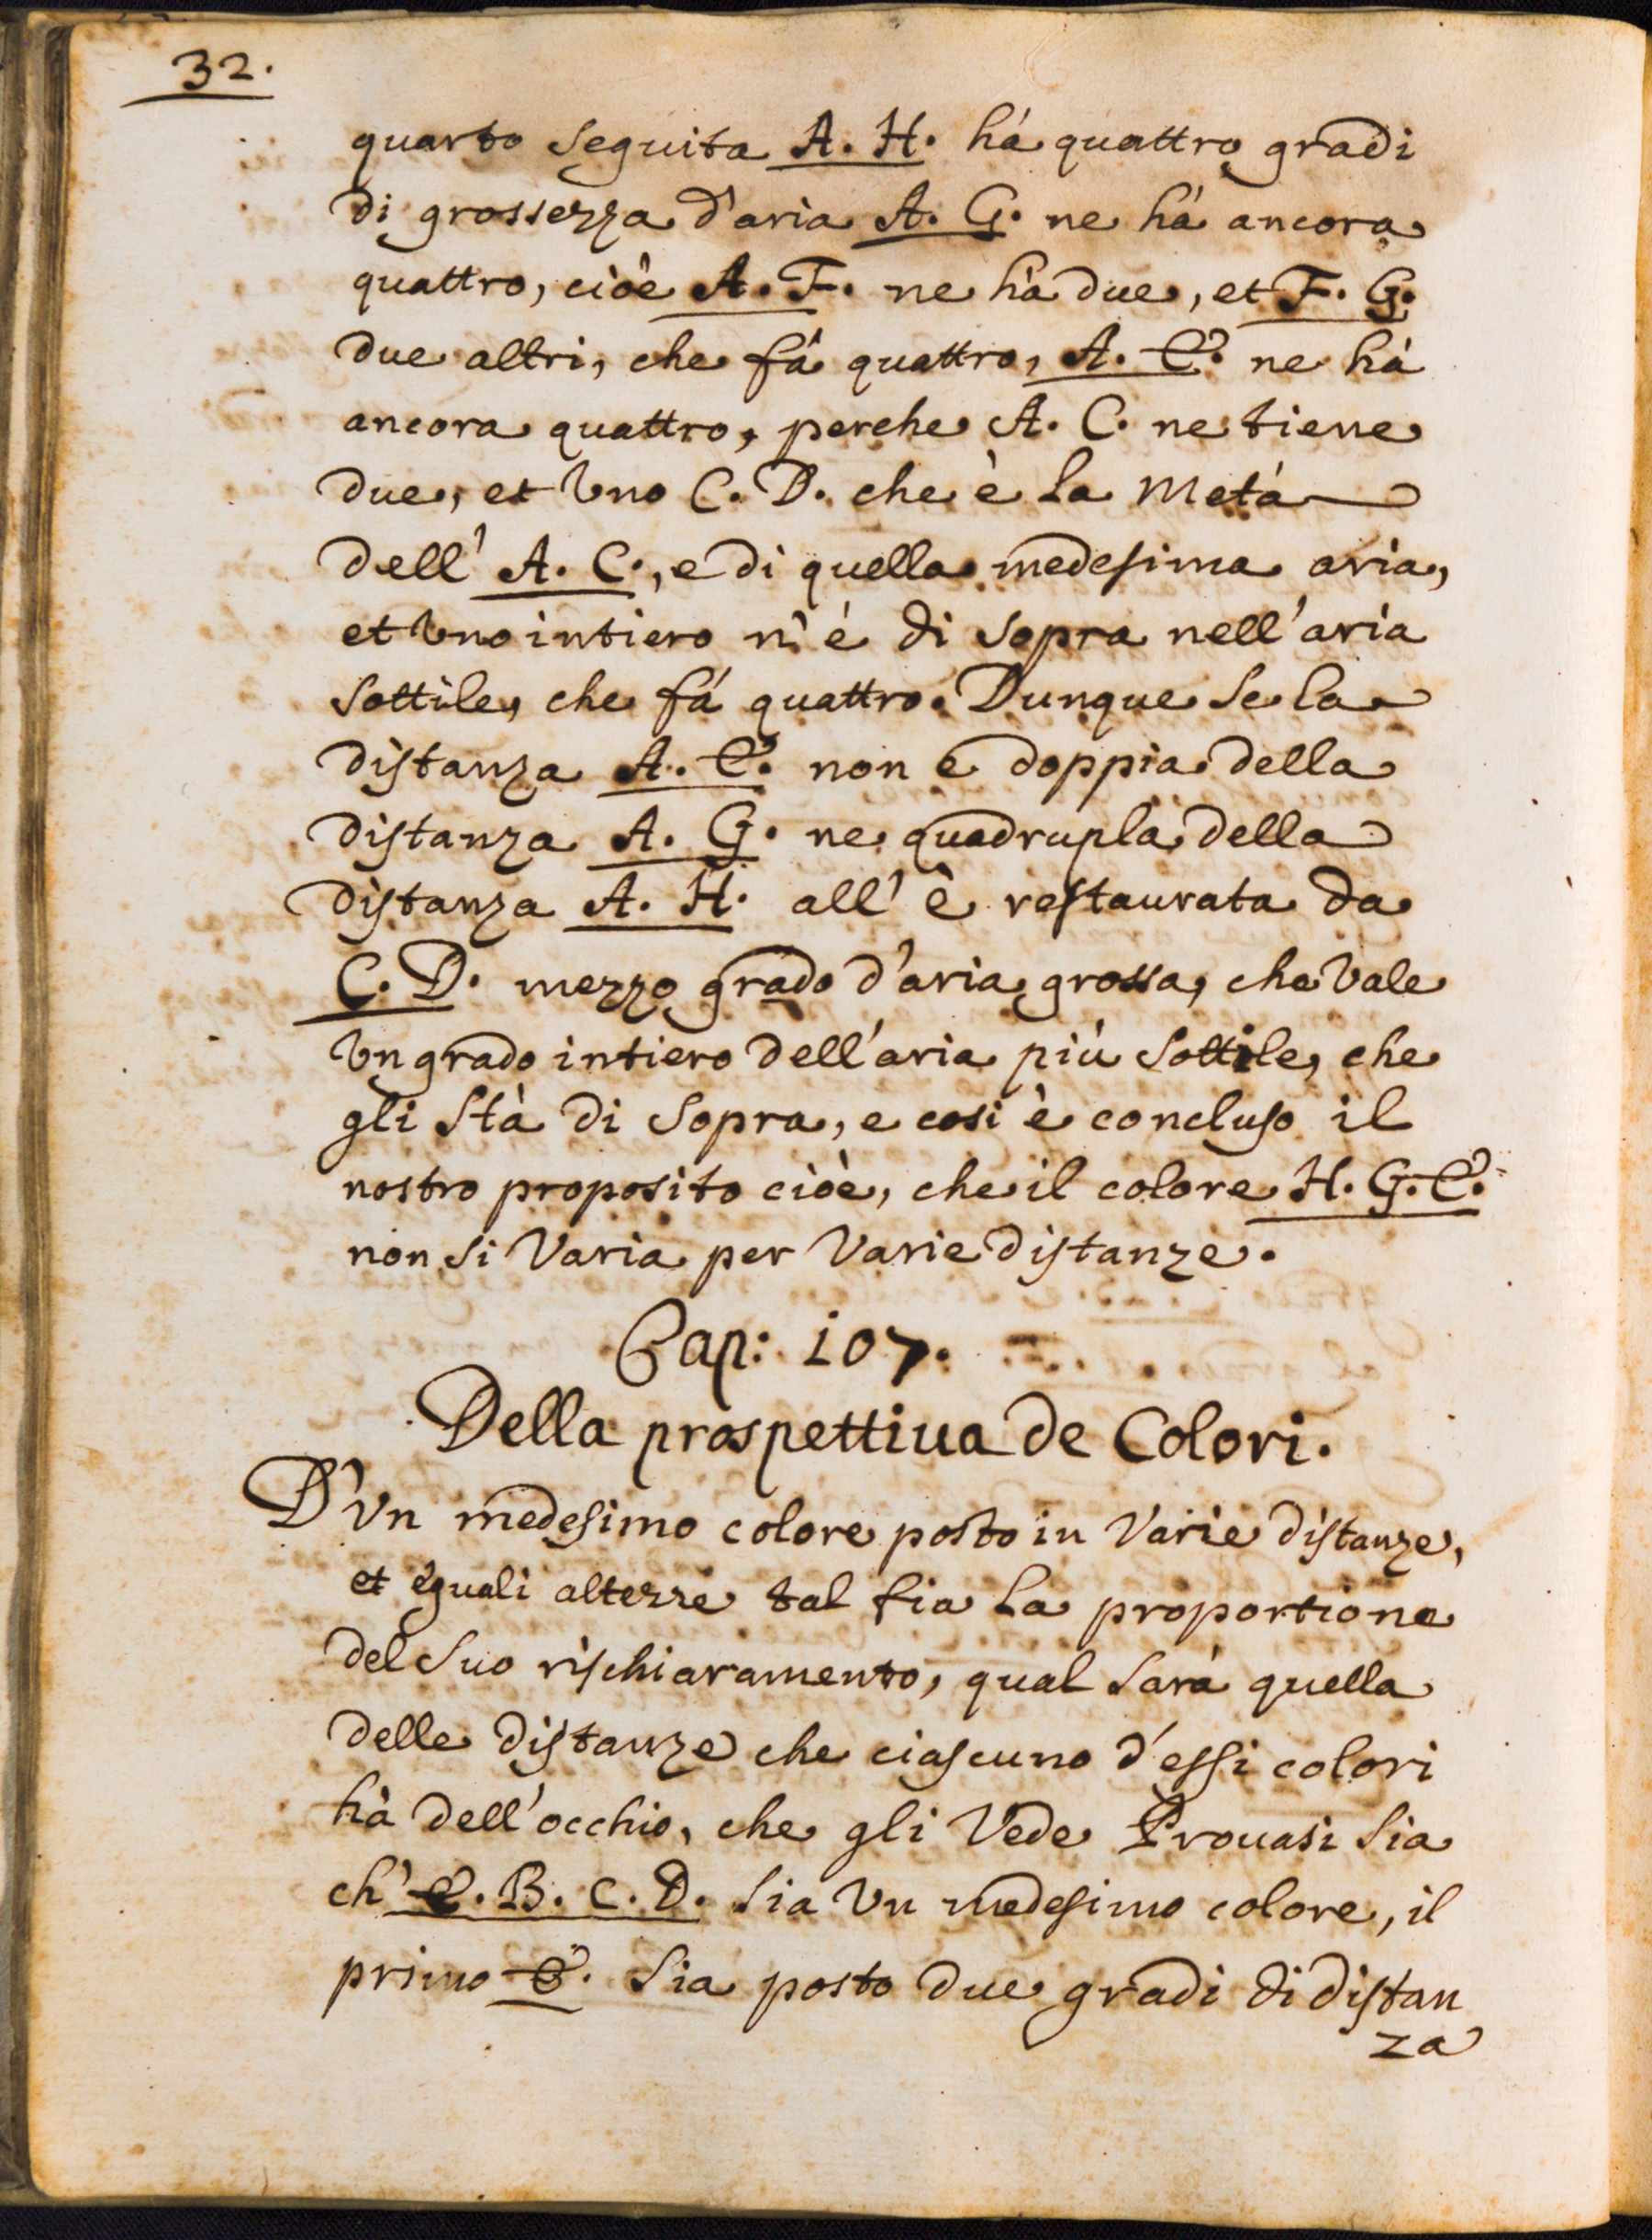 32.
quarto seguita A. H. há quattro gradi
di grossezza d'aria A. G. ne há ancora
quattro, cioè A. F. ne hà due, et F. G.
due altri, che fá quattro, A. E. ne hà
ancora quattro, perche A. C. ne tiene
due, et Vno C. D. che è la Metá
dell' A. C., e di quella medesima aria,
et Vno intiero n'é di sopra nell'aria
sottile, che fá quattro. Dunque se la
distanza A. E. non e doppia della
distanza A. G. ne quadrupla della
distanza A. H. all' è restaurata da
C. D. mezzo grado d'aria grossa, che Vale
Vn grado intiero dell'aria più sottile, che
gli stà di sopra, e cosi è concluso il
nostro proposito cioè, che il colore H. G. E.
non si Varia per Varie distanze.
Cap: 107.
Della prospettiua de Colori.
D'Vn medesimo colore posto in Varie distanze,
et eguali altezze tal fia la proportione
del suo rischiaramento, qual sarà quella
delle distanze che ciascuno d'essi colori
hà dell'occhio, che gli Vede Prouasi sia
ch' E. B. C. D. sia Vn medesimo colore, il
primo E. sia posto due gradi di distan
za